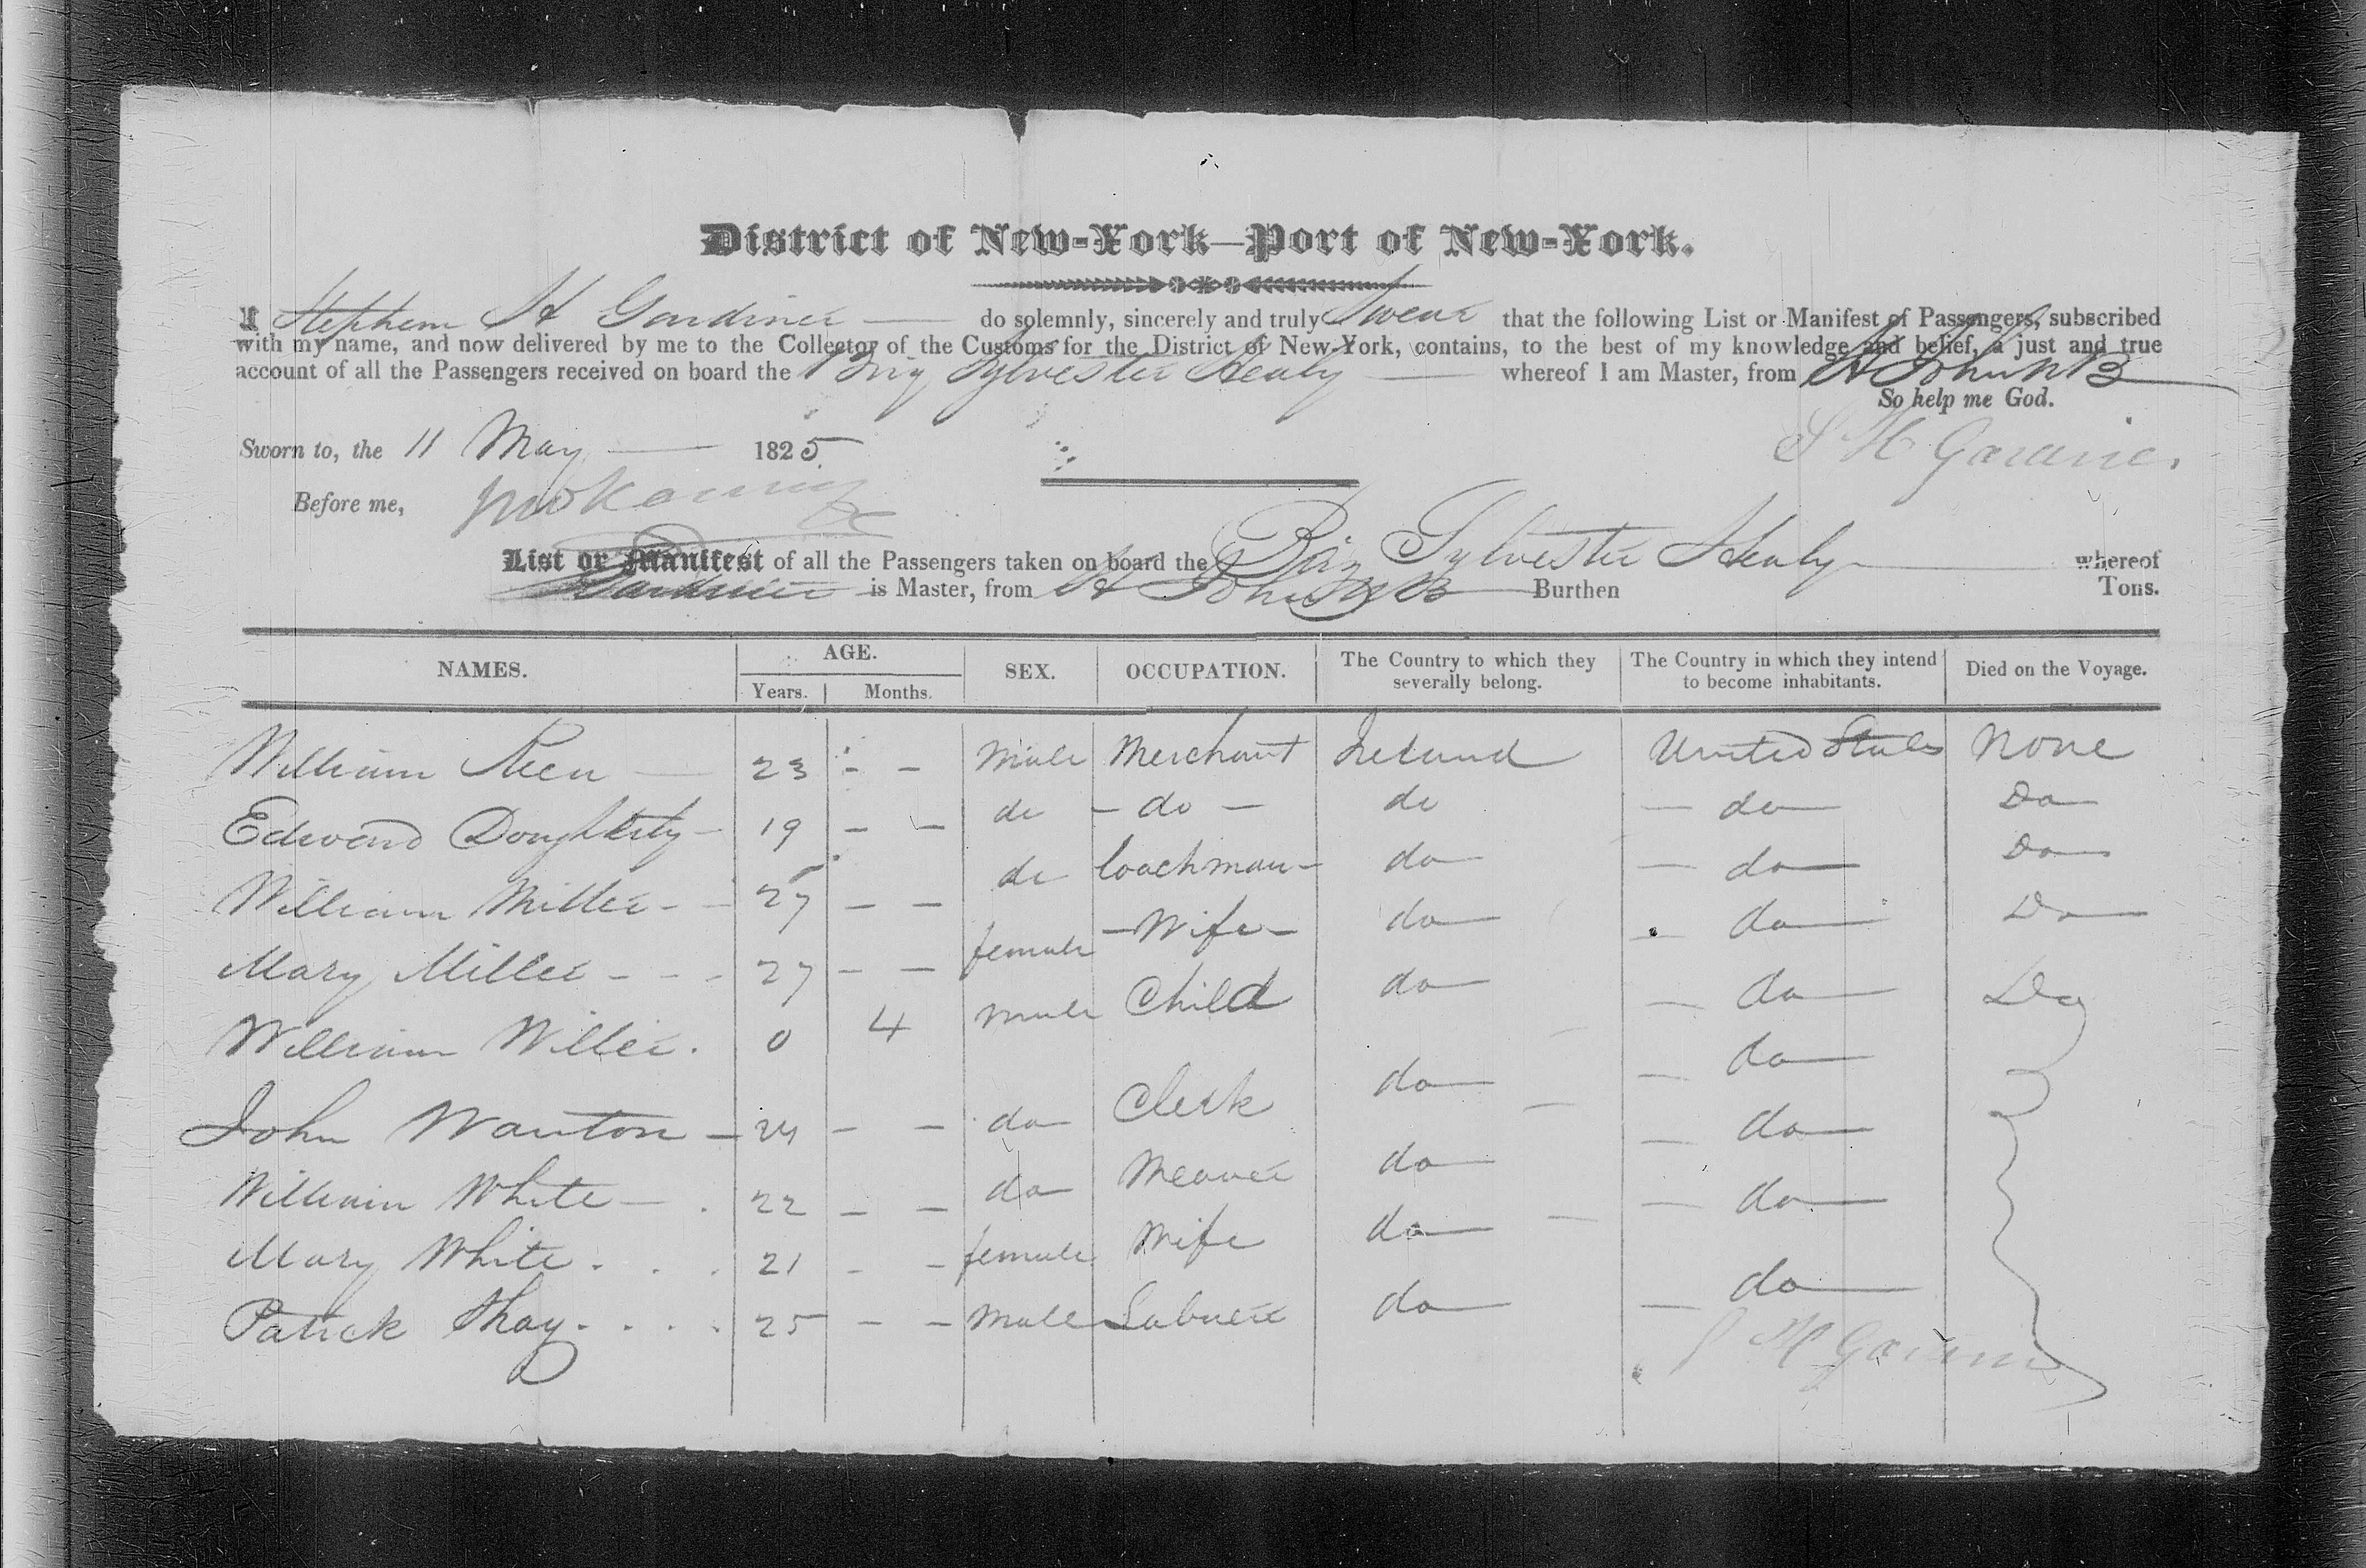 District of New-York—Port of New-York.
I Stephen H Gardiner — do solemnly, sincerely and truly Swear that the following List or Manifest of Passengers, subscribed
with my name, and now delivered by me to the Collector of the Customs for the District of New-York, contains, to the best of my knowledge and belief, a just and true
account of all the Passengers received on board the Brig Sylvester Healy — whereof I am Master, from St John NB
So help me God.
Sworn to, the 11 May — 1825 S H Gardiner
Before me,
List or Manifest of all the Passengers taken on board the Brig Sylvester Healy — whereof
Gardiner is Master, from St Johns NB — Burthen Tons.
NAMES. AGE. SEX. OCCUPATION. The Country to which they severally belong. The Country in which they intend to become inhabitants. Died on the Voyage.
Years. Months.
William — 23 - - Male Merchant Ireland United States None
Edward Dougherty - 19 - - do - do - do - do Do
William Miller - - 27 - - do Coachman - do - do Do
Mary Miller - - - 27 - - female - Wife - do - do Do
William Miller. 0 4 male Child do - do Do
John Wanton - 24 - - do Clerk do - do
William White - . 22 - - do Weaver do - do
Mary White . . . 21 - - female Wife do - do
Patrick Shay . . . . 25 - - Male Labuere do - do
S H Gardiner